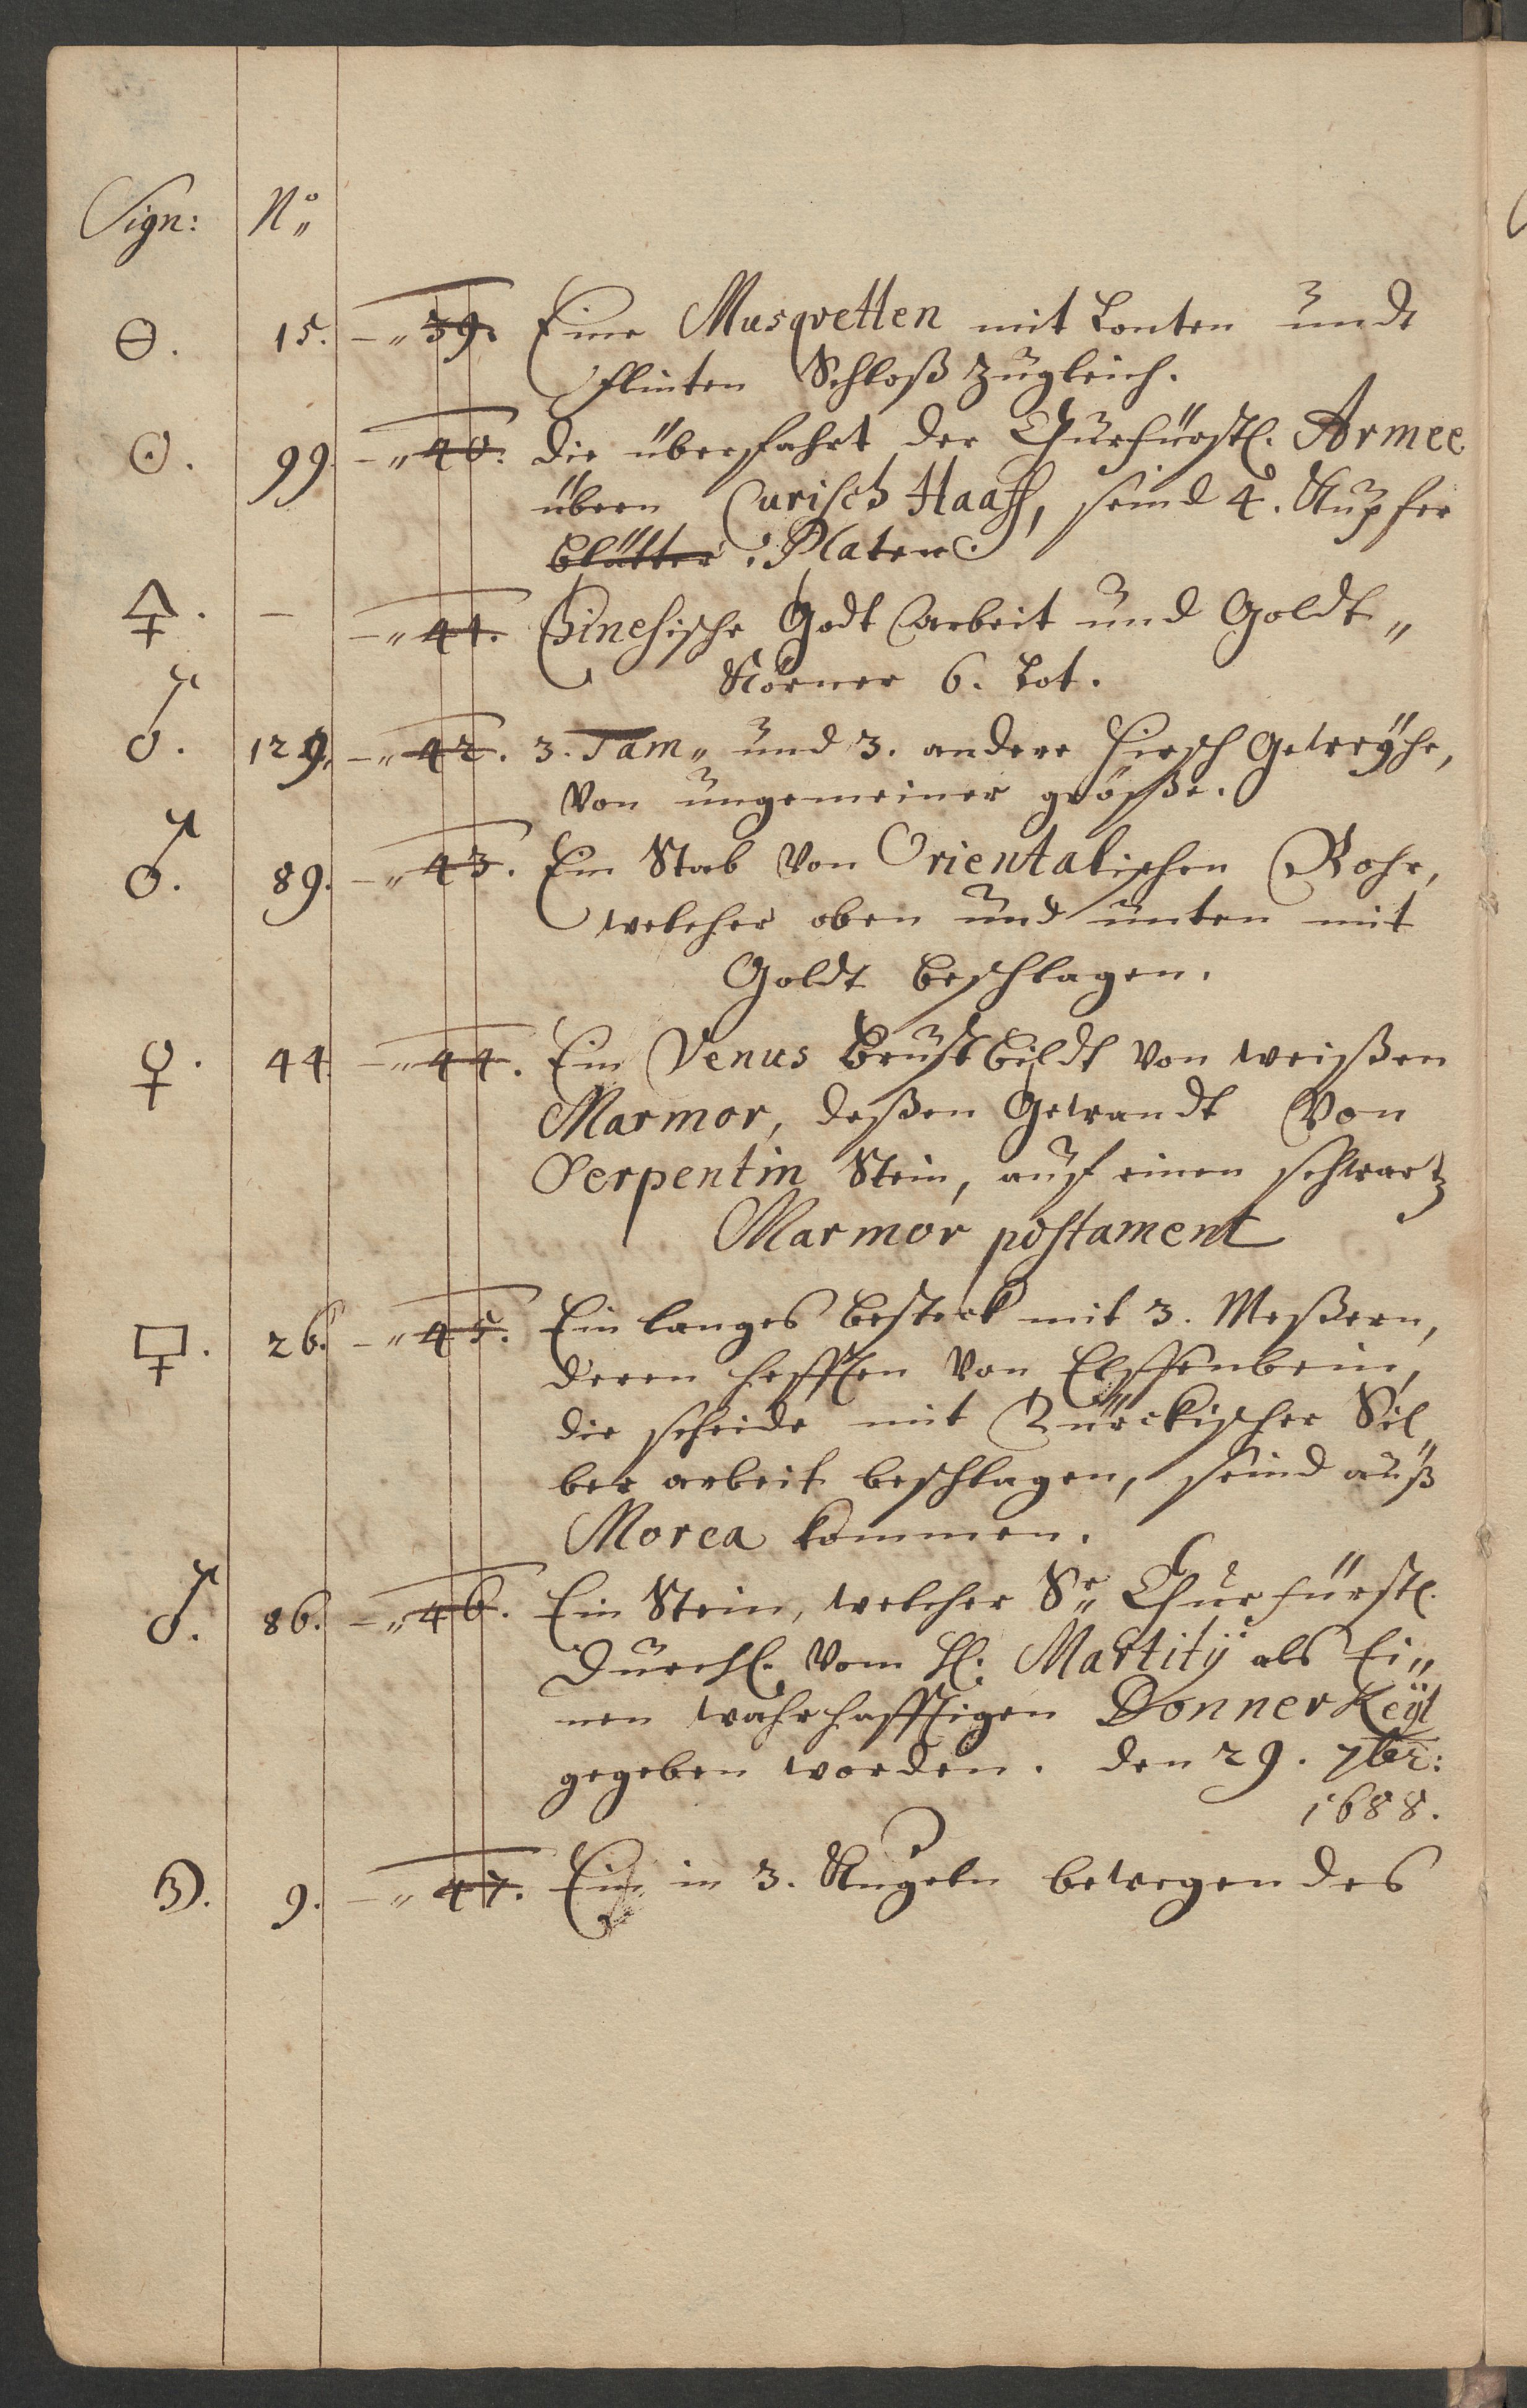 Sign: No
🜔. 15. -„ 39. Eine Musqvetten mit Lonten undt
flinten Schloß zugleich.
☉. 99. -„ 40. die überfahrt der Churfürstl. Armee
übern Curisch Haaff, seind 4. Kupfer
blätter. Platen.
- -„ 41. Chinesische Godt arbeit und Goldt„
Körner 6. Lot.
♂. 129. -„ 42. 3. Tam„ und 3. andere Hirsch Geweÿhe,
von ungemeiner größe.
♂. 89. -„ 43. Ein Stab von Orientalischen Rohr,
welcher oben und unten mit
Goldt beschlagen.
♀. 44. -„ 44. Ein Venus Brustbildt von weißen
Marmor, deßen Gewandt von
Serpentin Stein, auf einen schwartz
Marmor postament
26. -„ 45. Ein langes besteck mit 3. Meßern,
deren Hefften von Elffenbein,
die scheide mit Türckischer Sil„
ber arbeit beschlagen, seind auß
Morea kommen.
♂. 86. -„ 46. Ein Stein, welcher Sr„ Churfürstl.
Durchl. vom H. Martitÿ als Ei„
nen wahrhafftigen Donner Keÿl
gegeben worden. den 29. 7br:
1688.
9. -„ 47. Ein in 3. Kugeln bewegendes